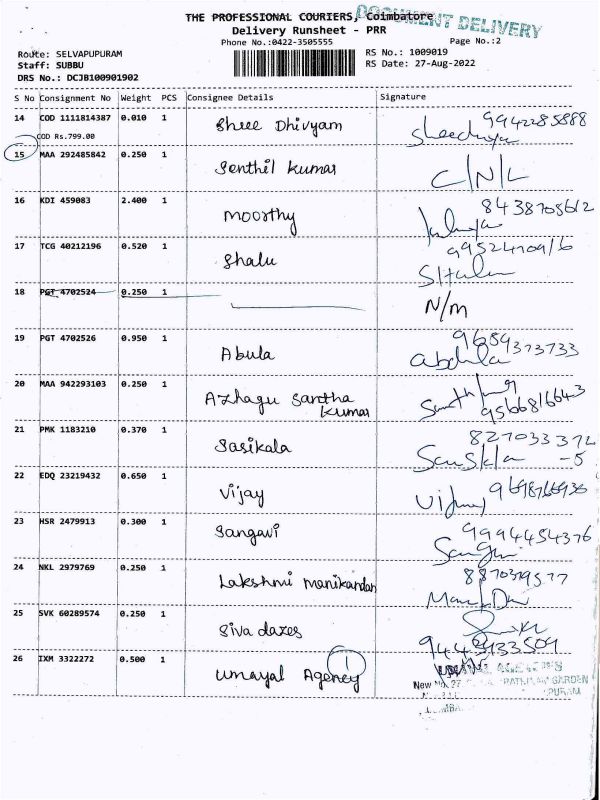 THE PROFESSIONAL COURIERS, Coimbatore
DOCUMENT DELIVERY
Delivery Runsheet - PRR
Phone No.:0422-3505555
Page No.:2
Route: SELVAPUPURAM
RS No.: 1009019
Staff: SUBBU
RS Date: 27-Aug-2022
DRS No.: DCJB100901902
S No Consignment No Weight PCS Consignee Details Signature
14 COD 1111814387 0.010 1 Shree Dhivyam 9942285888
COD Rs.799.00
15 MAA 292485842 0.250 1 Senthil Kumar C/N/L
16 KDI 459083 2.400 1 Moorthy 8438705612
17 TCG 40212196 0.520 1 Shalu
18 PGT 4702524 0.250 1 N/M
19 PGT 4702526 0.950 1 Abula 9659373733
abdula
20 MAA 942293103 0.250 1 Azhagu Santha Kumar
9566816643
21 PMK 1183210 0.370 1 Sasikala 827033372
-5
22 EDQ 23219432 0.650 1 Vijay Vijay
23 HSR 2479913 0.300 1 Sangavi 9994454376
24 NKL 2979769 0.250 1 Lakshmi Manikandan
25 SVK 60289574 0.250 1 Siva dazes
9443933509
26 IXM 3322272 0.500 1 Umayal Agency 1
New No. 27
GARDEN